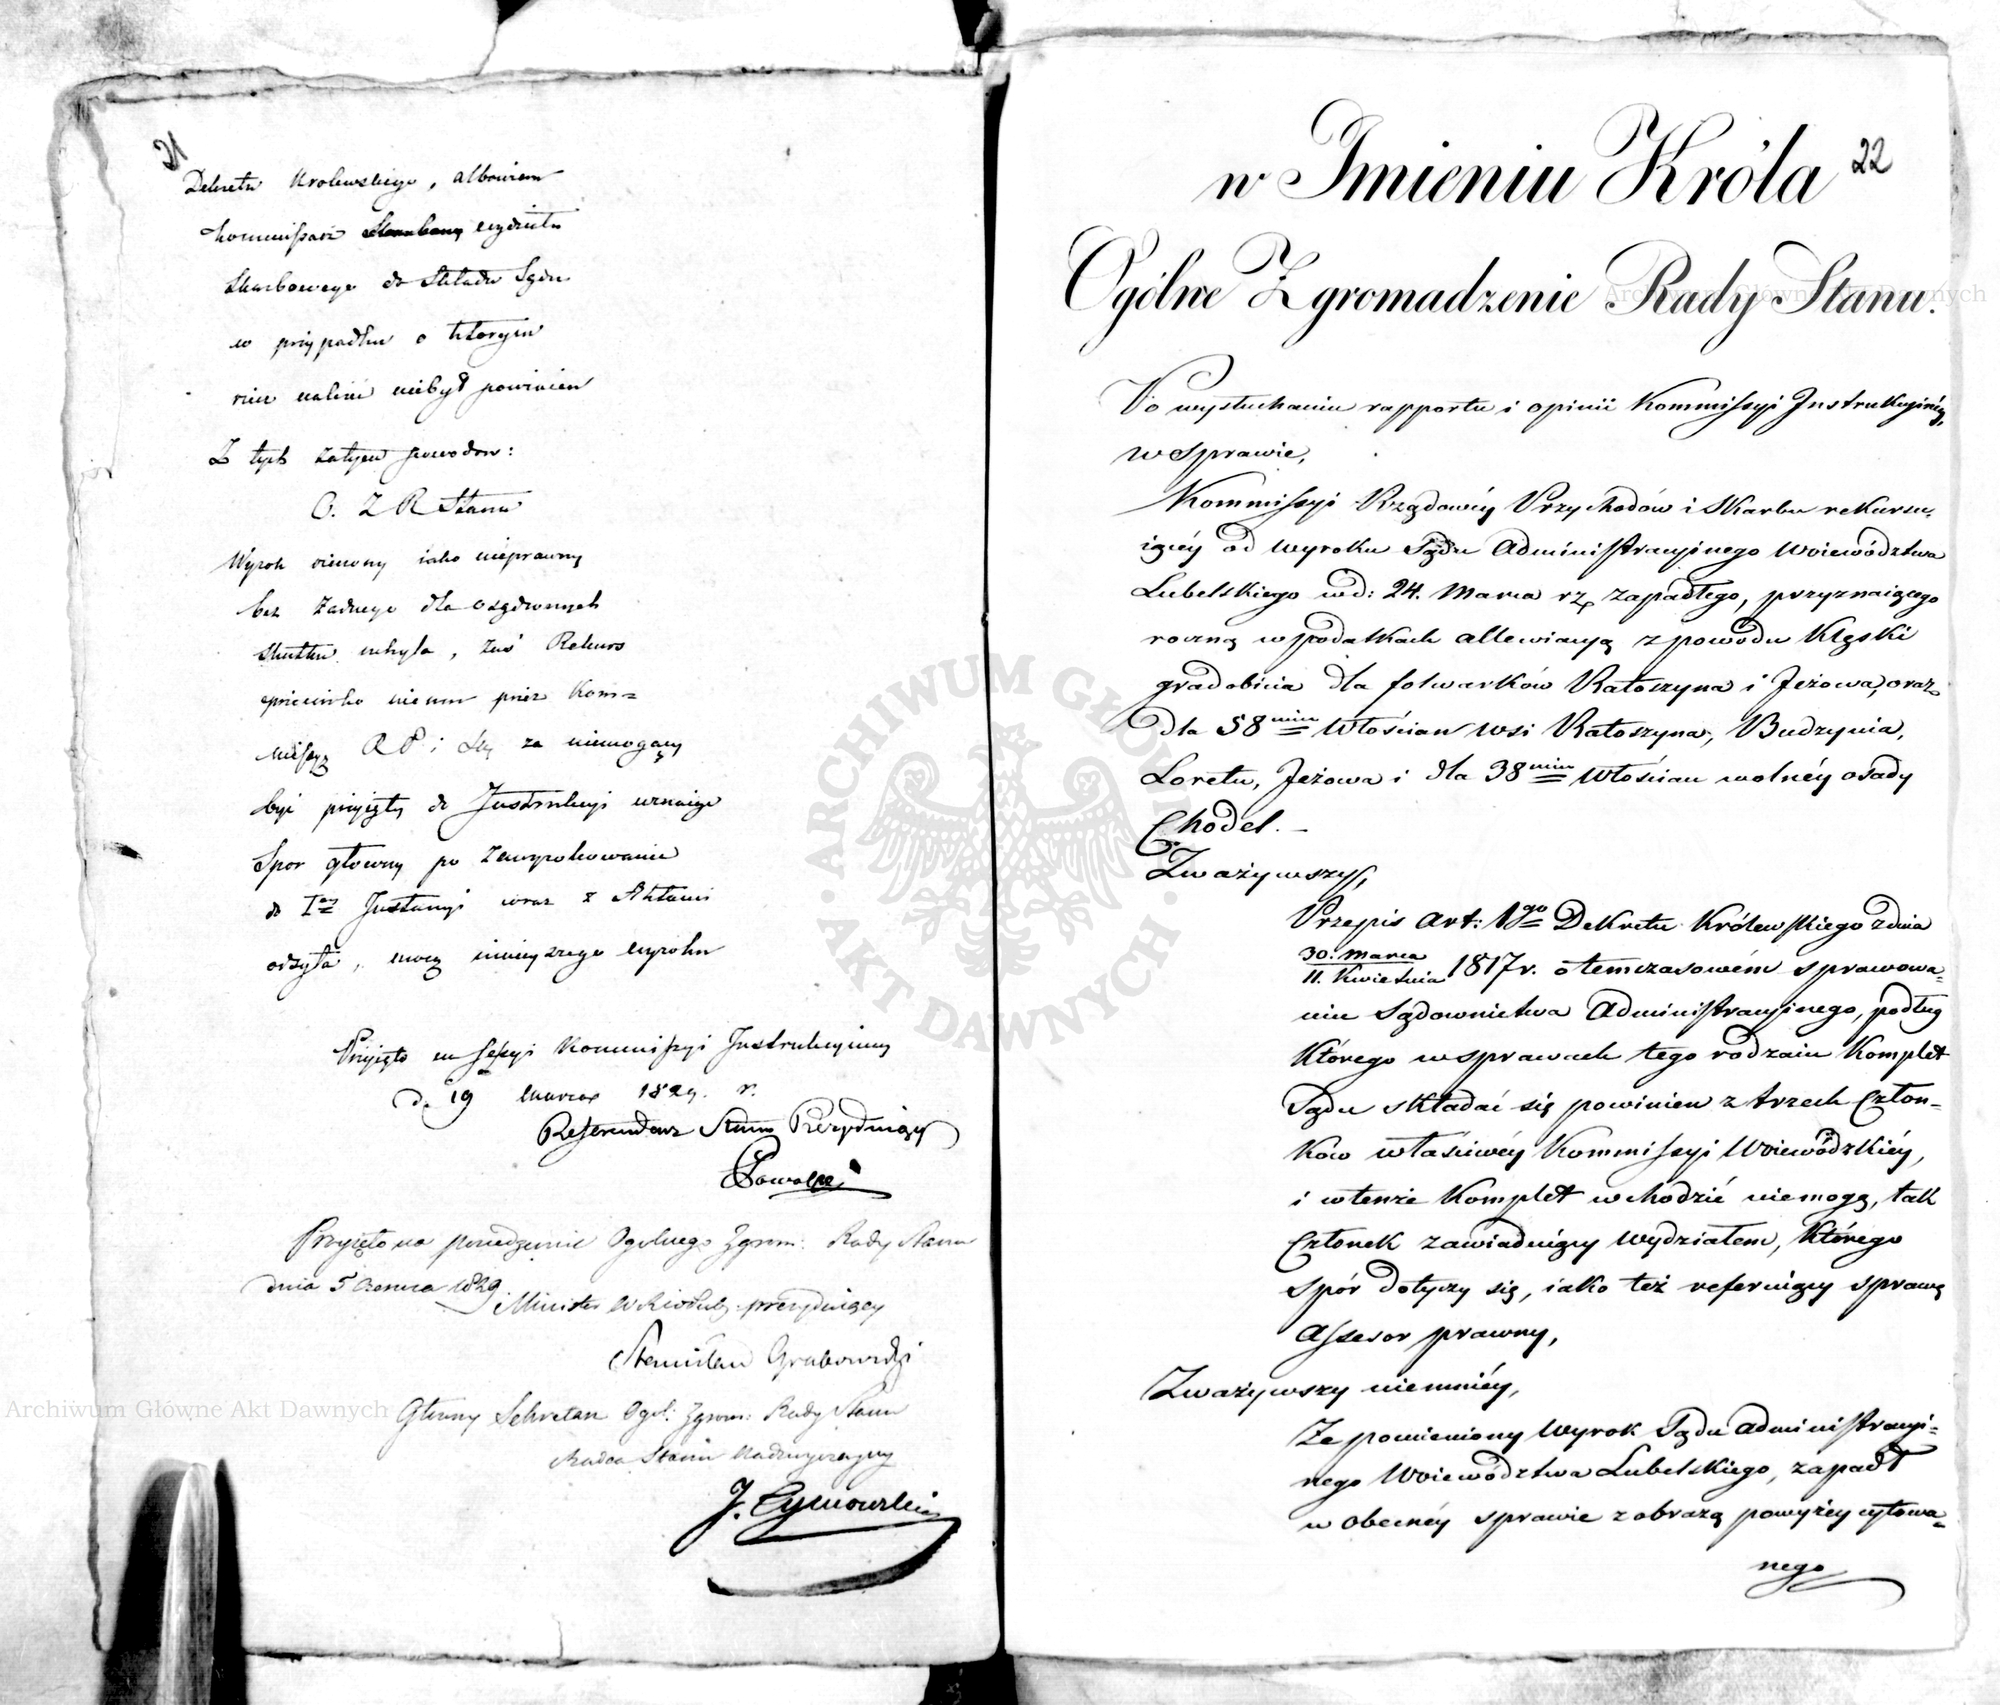 21
Dekretu Krolewskiego, albowiem
kommissarz wydziału
Skarbowego do Składu Sądu
w przypadku o ktorym
rzecz należeć niebył powinien
Z tych zatym powodow:
O. Z R Stanu
Wyrok rzeczony iako nieprawny
bez żadnego dla osądzonych
skutku uchyla, zaś Rekurs
przeciwko niemu przez Kom=
missyą R P i S za niemogący
być przyięty do Instrukcyi uznaie
Spor główny po zawyrokowanie
do Iey Instancyi wraz z Aktami
odsyła, mocą ninieyszego wyroku
Przyięto na Sessyi Kommissyi Instrukcyiney
d. 19 marca 1829. r.
Referendarz Stanu Prezyduiący
Przyięto na posiedzeniu Ogolnego Zgrom: Rady Stanu
dnia 5 Czerwca 1829.
Minister prezyduiący
Stanisław Grabowski
Główny Sekretarz Ogol: Zgrom: Rady Stanu
Radca Stanu Nadzwyczayny
J. Tymowski
22
w Imieniu Króla
Ogólne Zgromadzenie Rady Stanu.
Po wysłuchaniu rapportu i opinii Kommissyi Instrukcyinéy,
w sprawie,
Kommissyi Rządowéy Przychodów i Skarbu rekursu=
iącéy od wyroku Sądu Administracyinego Woiewództwa
Lubelskiego w d: 24. Marca r z. zapadłego, przyznaiącego
roczną w podatkach allewiacyą z powodu klęski
gradobicia dla folwarków Ratoszyna i Jeżowa, oraz
dla 58miu Włościan wsi Ratoszyna, Budzynia,
Loretu, Jeżowa i dla 38miu Włościan wolnéy osady
Chodel. –
Zważywszy,
Przepis art: 1go Dekretu Królewskiego z dnia
30. Marca
11. Kwietnia 1817 r. o temczasowém sprawowa=
niu Sądownictwa Administracyinego, podług
którego w sprawach tego rodzaiu Komplet
Sądu składać się powinien z trzech Człon=
ków właściwéy Kommissyi Woiewódzkiéy,
i w tenże Komplet wchodzić niemogą, tak
Członek zawiaduiący Wydziałem, którego
spór dotyczy się, iako też referuiący sprawę
Assesor prawny,
Zważywszy niemniéy,
Że pomieniony Wyrok Sądu Administracyi=
nego Woiewództwa Lubelskiego, zapadł
w obecnéy sprawie z obrazą powyżéy cytowa=
nego
Archiwum Główne Akt Dawnych
Archiwum Główne Akt Dawnych
ARCHIWUM GŁÓWNE · AKT DAWNYCH ·